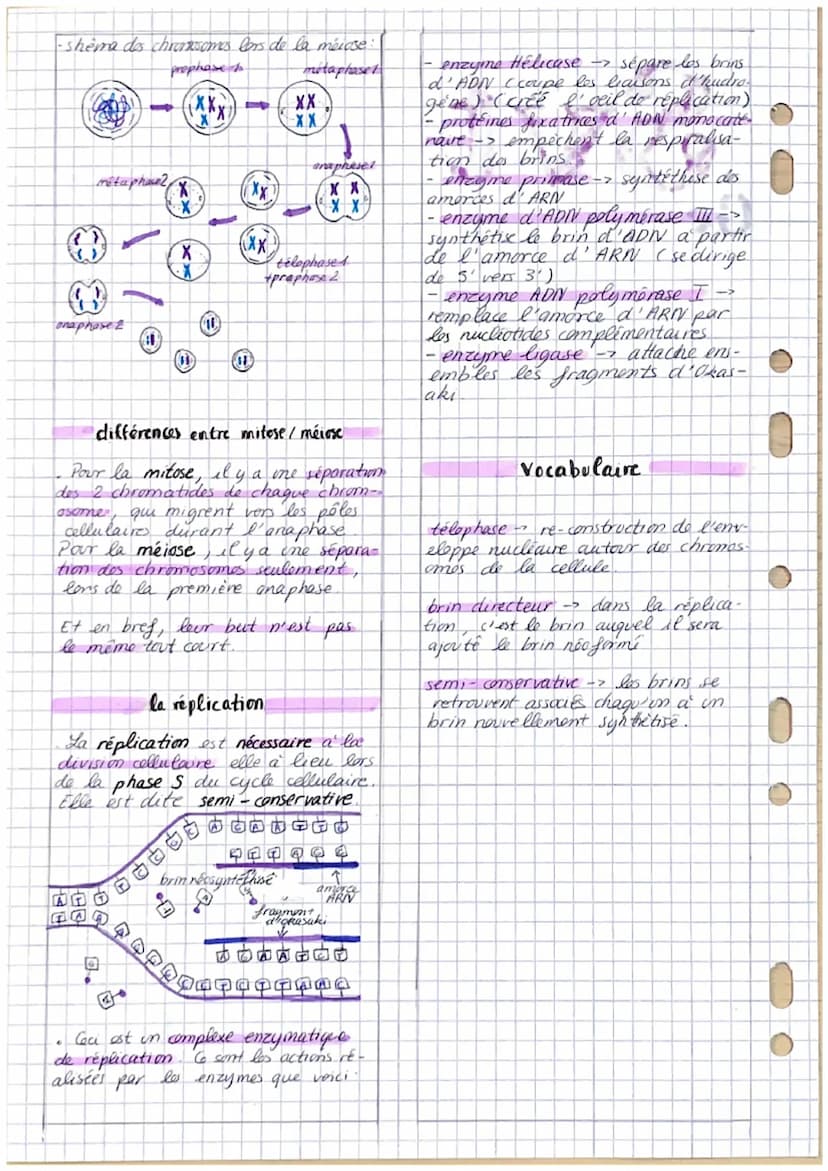 - shéma des chromosomes lors de la méiose:
prophase 1
métaphase 1
anaphase 1
métaphase 2
télophase 1
+prophase 2
anaphase 2
différences entre mitose / méiose
. Pour la mitose, il y a une séparation
des 2 chromatides de chaque chrom-
osome, qui migrent vers les pôles
cellulaires durant l'anaphase
Pour la méiose, il y a une sépara-
tion des chromosomes seulement,
lors de la première anaphase.
Et en bref, leur but n'est pas
le même tout court.
la réplication
. La réplication est nécessaire à la
division cellulaire elle à lieu lors
de la phase S du cycle cellulaire.
Elle est dite semi-conservative.
brin néosynthétisé
amorce
ARN
fragment
d'okasaki
. Ceci est un complexe enzymatique
de réplication. Ce sont les actions ré-
alisées par les enzymes que voici:
- enzyme Hélicase -> sépare les brins
d'ADN (coupe les liaisons d'hudro-
gène) (crée l'oeil de réplication)
- protéines fixatrices d'ADN monocaté-
naire -> empêchent la respiralisa-
tion des brins.
- enzyme primase -> syntéthise des
amorces d'ARN
- enzyme d'ADN polymérase III ->
synthétise le brin d'ADN à partir
de l'amorce d'ARN (se dirige
de 5' vers 3')
- enzyme ADN polymérase I ->
remplace l'amorce d'ARN par
les nucléotides complémentaires
- enzyme ligase -> attache ens-
embles les fragments d'Okas-
aki.
Vocabulaire
télophase -> re-construction de l'env-
eloppe nucléaire autour des chromos-
omes de la cellule.
brin directeur -> dans la réplica-
tion, c'est le brin auquel il sera
ajouté le brin néoformé
semi-conservative -> les brins se
retrouvent associés chaqu'un à un
brin nouvellement synthétisé.